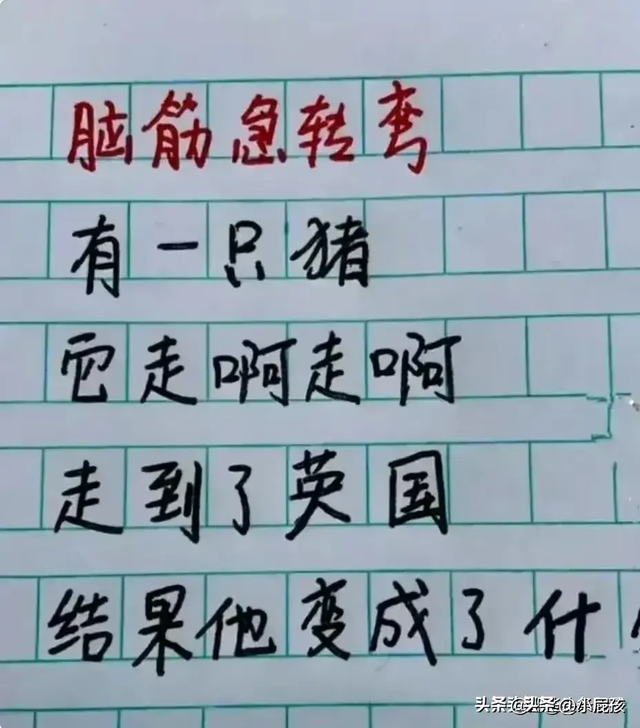 脑筋急转弯
有一只猪
它走啊走啊
走到了英国
结果他变成了什
头条 @小屁孩